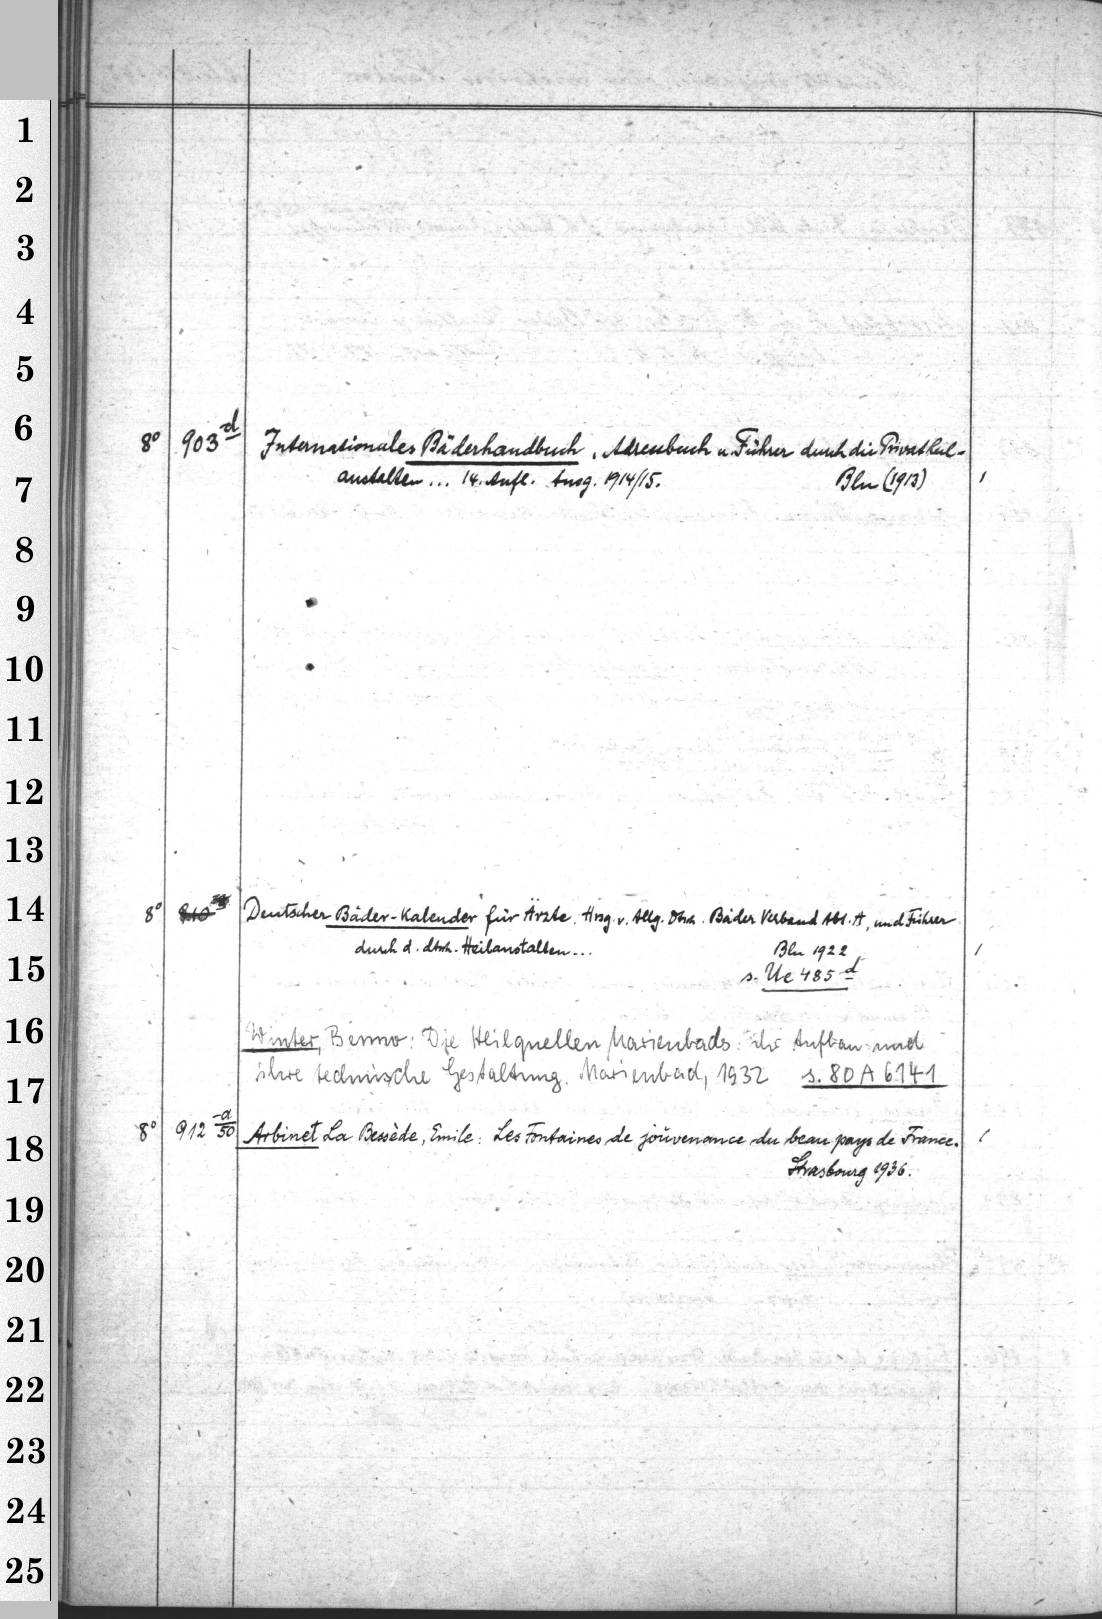 1
2
3
4
5
6
7
8
9
10
11
12
13
14
15
16
17
18
19
20
21
22
23
24
25
8° 903 d Internationales Bäderhandbuch, Adressbuch u. Führer durch die Privatheil-
anstalten ... 14. Aufl. Ausg. 1914/15. Bln (1913) 1
8° 910 Deutscher Bäder-Kalender für Ärzte. Hrsg. v. Allg. Dtsch. Bäder Verband Abt. A, und Führer
durch d. dtsch. Heilanstalten... Bln 1922 1
s. Ue 485 d
Winter, Benno: Die Heilquellen Marienbads: ihr Aufbau und
ihre technische Gestaltung. Marienbad, 1932 s. 80 A 6141
8° 912 a/50 Arbinet La Bessède, Emile: Les Fontaines de jouvenance du beau pays de France. 1
Strasbourg 1936.